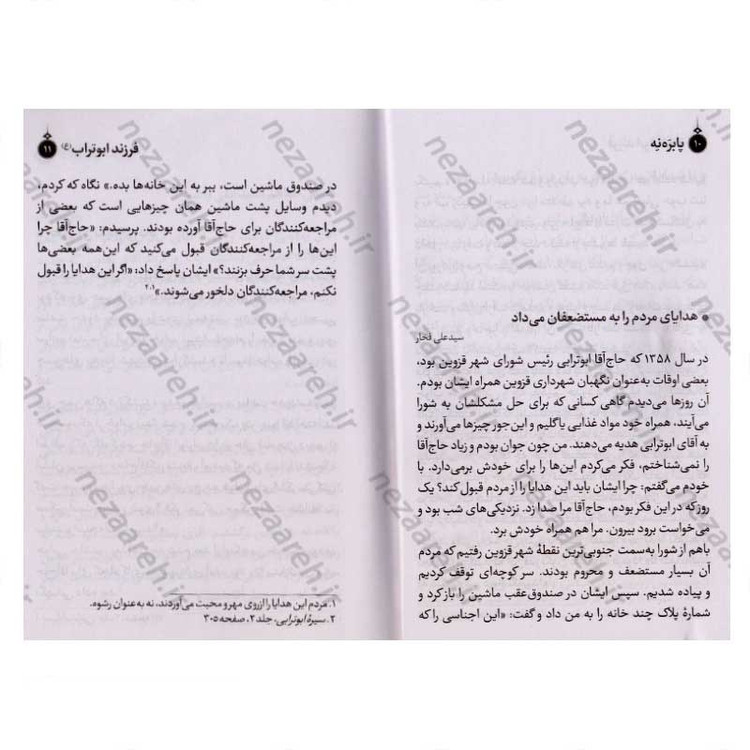 ۱۰ پابرَه‌نِه
• هدایای مردم را به مستضعفان می‌داد
سیدعلی فخار
در سال ۱۳۵۸ که حاج‌آقا ابوترابی رئیس شورای شهر قزوین بود،
بعضی اوقات به‌عنوان نگهبان شهرداری قزوین همراه ایشان بودم.
آن روزها می‌دیدم گاهی کسانی که برای حل مشکلشان به شورا
می‌آیند، همراه خود مواد غذایی یا گلیم و این‌جور چیزها می‌آورند و
به آقای ابوترابی هدیه می‌دهند. من چون جوان بودم و زیاد حاج‌آقا
را نمی‌شناختم، فکر می‌کردم این‌ها را برای خودش برمی‌دارد. با
خودم می‌گفتم: چرا ایشان باید این هدایا را از مردم قبول کند؟ یک
روز که در این فکر بودم، حاج‌آقا مرا صدا زد. نزدیکی‌های شب بود و
می‌خواست برود بیرون. مرا هم همراه خودش برد.
باهم از شورا به‌سمت جنوبی‌ترین نقطهٔ شهر قزوین رفتیم که مردم
آن بسیار مستضعف و محروم بودند. سر کوچه‌ای توقف کردیم
و پیاده شدیم. سپس ایشان در صندوق عقب ماشین را باز کرد و
شمارهٔ پلاک چند خانه را به من داد و گفت: «این اجناسی را که
فرزند ابوتراب(ع) ۱۱
در صندوق ماشین است، ببر به این خانه‌ها بده.» نگاه که کردم،
دیدم وسایل پشت ماشین همان چیزهایی است که بعضی از
مراجعه‌کنندگان برای حاج‌آقا آورده بودند. پرسیدم: «حاج‌آقا چرا
این‌ها را از مراجعه‌کنندگان قبول می‌کنید که این‌همه بعضی‌ها
پشت سر شما حرف بزنند؟» ایشان پاسخ داد: «اگر این هدایا را قبول
نکنم، مراجعه‌کنندگان دلخور می‌شوند.»۱،۲
۱. مردم این هدایا را ازروی مهر و محبت می‌آوردند، نه به‌عنوان رشوه.
۲. سیرهٔ ابوترابی، جلد ۲، صفحه ۳۰۵
nezaareh.ir